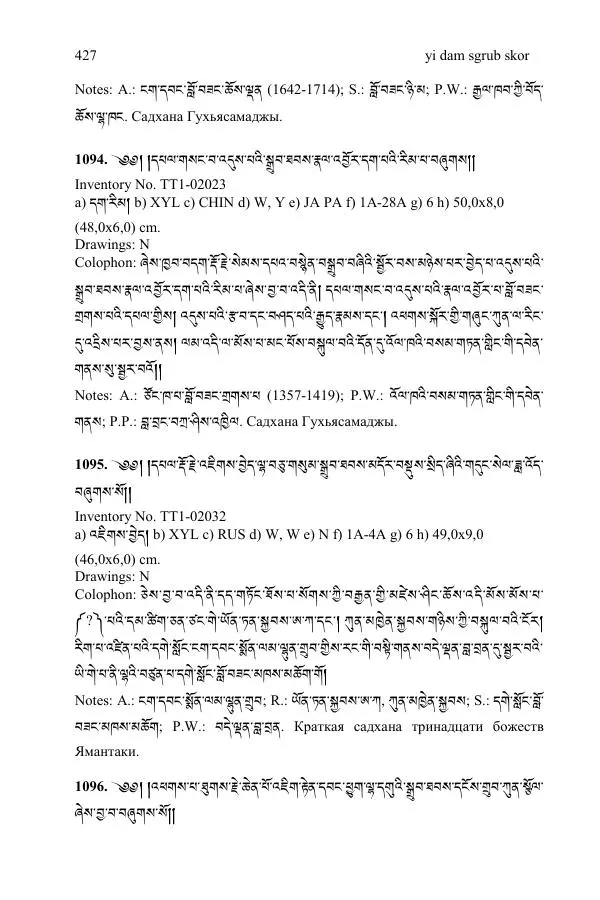 427 yi dam sgrub skor
Notes: A.: ངག་དབང་བློ་བཟང་ཆོས་ལྡན (1642-1714); S.: བློ་བཟང་ཉི་མ; P.W.: རྒྱལ་ཁབ་ཀྱི་བོད་
ཆོས་ལྷ་ཁང. Садхана Гухьясамаджы.
1094. ༄༅། །དཔལ་གསང་བ་འདུས་པའི་སྒྲུབ་ཐབས་རྣལ་འབྱོར་དག་པའི་རིམ་པ་བཞུགས།།
Inventory No. TT1-02023
a) དག་རིམ། b) XYL c) CHIN d) W, Y e) JA PA f) 1A-28A g) 6 h) 50,0x8,0
(48,0x6,0) cm.
Drawings: N
Colophon: ཞེས་ཁྱབ་བདག་རྡོ་རྗེ་སེམས་དཔའ་བསྙེན་བསྒྲུབ་བཞིའི་སྦྱོར་བས་མཉེས་པར་བྱེད་པ་འདུས་པའི་
སྒྲུབ་ཐབས་རྣལ་འབྱོར་དག་པའི་རིམ་པ་ཞེས་བྱ་བ་འདི་ནི། དཔལ་གསང་བ་འདུས་པའི་རྣལ་འབྱོར་པ་བློ་བཟང་
གྲགས་པའི་དཔལ་གྱིས། འདུས་པའི་རྩ་བ་དང་བཤད་པའི་རྒྱུད་རྣམས་དང་། འཕགས་སྐོར་གྱི་གཞུང་ཀུན་ལ་རིང་
དུ་འདྲིས་པར་བྱས་ནས། ལམ་འདི་ལ་མོས་པ་མང་པོས་བསྐུལ་བའི་དོན་དུ་འོལ་ཁའི་བསམ་གཏན་གླིང་གི་དབེན་
གནས་སུ་སྦྱར་བའོ།།
Notes: A.: ཙོང་ཁ་པ་བློ་བཟང་གྲགས་པ (1357-1419); P.W.: འོལ་ཁའི་བསམ་གཏན་གླིང་གི་དབེན་
གནས; P.P.: བླ་བྲང་བཀྲ་ཤིས་འཁྱིལ. Садхана Гухьясамаджы.
1095. ༄༅། །དཔལ་རྡོ་རྗེ་འཇིགས་བྱེད་ལྷ་བཅུ་གསུམ་སྒྲུབ་ཐབས་མདོར་བསྡུས་སྲིད་ཞིའི་གདུང་སེལ་ཟླ་འོད་
བཞུགས་སོ།།
Inventory No. TT1-02032
a) འཇིགས་བྱེད། b) XYL c) RUS d) W, W e) N f) 1A-4A g) 6 h) 49,0x9,0
(46,0x6,0) cm.
Drawings: N
Colophon: ཅེས་བྱ་བ་འདི་ནི་དད་གཏོང་ཐོས་པ་སོགས་ཀྱི་བརྒྱན་གྱི་མཛེས་ཤིང་ཆོས་འདི་མོས་མོས་པ་
༼?༽པའི་དམ་ཚིག་ཅན་ཙང་གེ་ཡོན་ཏན་སྐྱབས་ཨ་ཀ་དང་། ཀུན་མཁྱེན་སྐྱབས་གཉིས་ཀྱི་བསྐུལ་བའི་ངོར།
རིག་པ་འཛིན་པའི་དགེ་སློང་ངག་དབང་སྨོན་ལམ་ལྷུན་གྲུབ་གྱིས་རང་གི་བསྟི་གནས་བདེ་ལྡན་བླ་བྲན་དུ་སྦྱར་བའི་
ཡི་གེ་པ་ནི་ལྷའི་བཙུན་པ་དགེ་སློང་བློ་བཟང་མཁས་མཆོག་གོ།
Notes: A.: ངག་དབང་སྨོན་ལམ་ལྷུན་གྲུབ; R.: ཡོན་ཏན་སྐྱབས་ཨ་ཀ, ཀུན་མཁྱེན་སྐྱབས; S.: དགེ་སློང་བློ་
བཟང་མཁས་མཆོག; P.W.: བདེ་ལྡན་བླ་བྲན. Краткая садхана тринадцати божеств
Ямантаки.
1096. ༄༅། །འཕགས་པ་ཐུགས་རྗེ་ཆེན་པོ་འཇིག་རྟེན་དབང་ཕྱུག་ལྷ་དགུའི་སྒྲུབ་ཐབས་དངོས་གྲུབ་ཀུན་སྩོལ་
ཞེས་བྱ་བ་བཞུགས་སོ།།